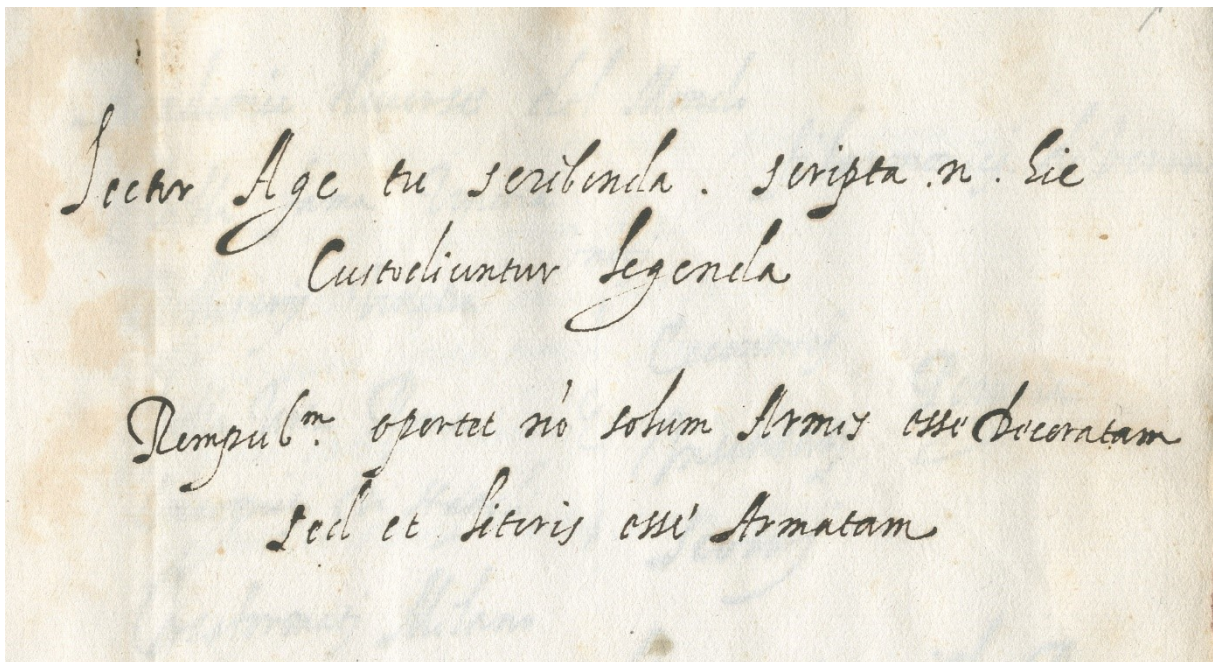 Lector Age tu scribenda . scripta .n. hic
Custodiuntur Legenda
Rempub^m. oportet nõ solum Armis esse Decoratam
sed et literis esse Armatam